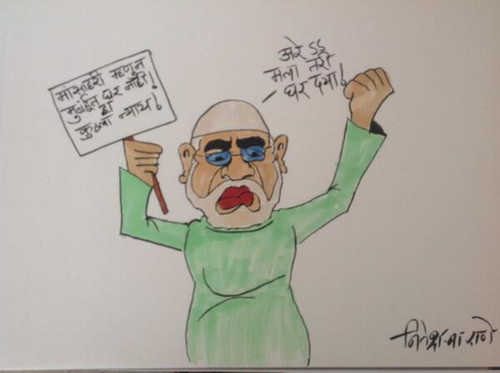 मांसाहारी म्हणून
मुंबईत घर नाही!
ही
कुठला न्याय!
अरे ऽऽ
मला तरी
घर द्या!